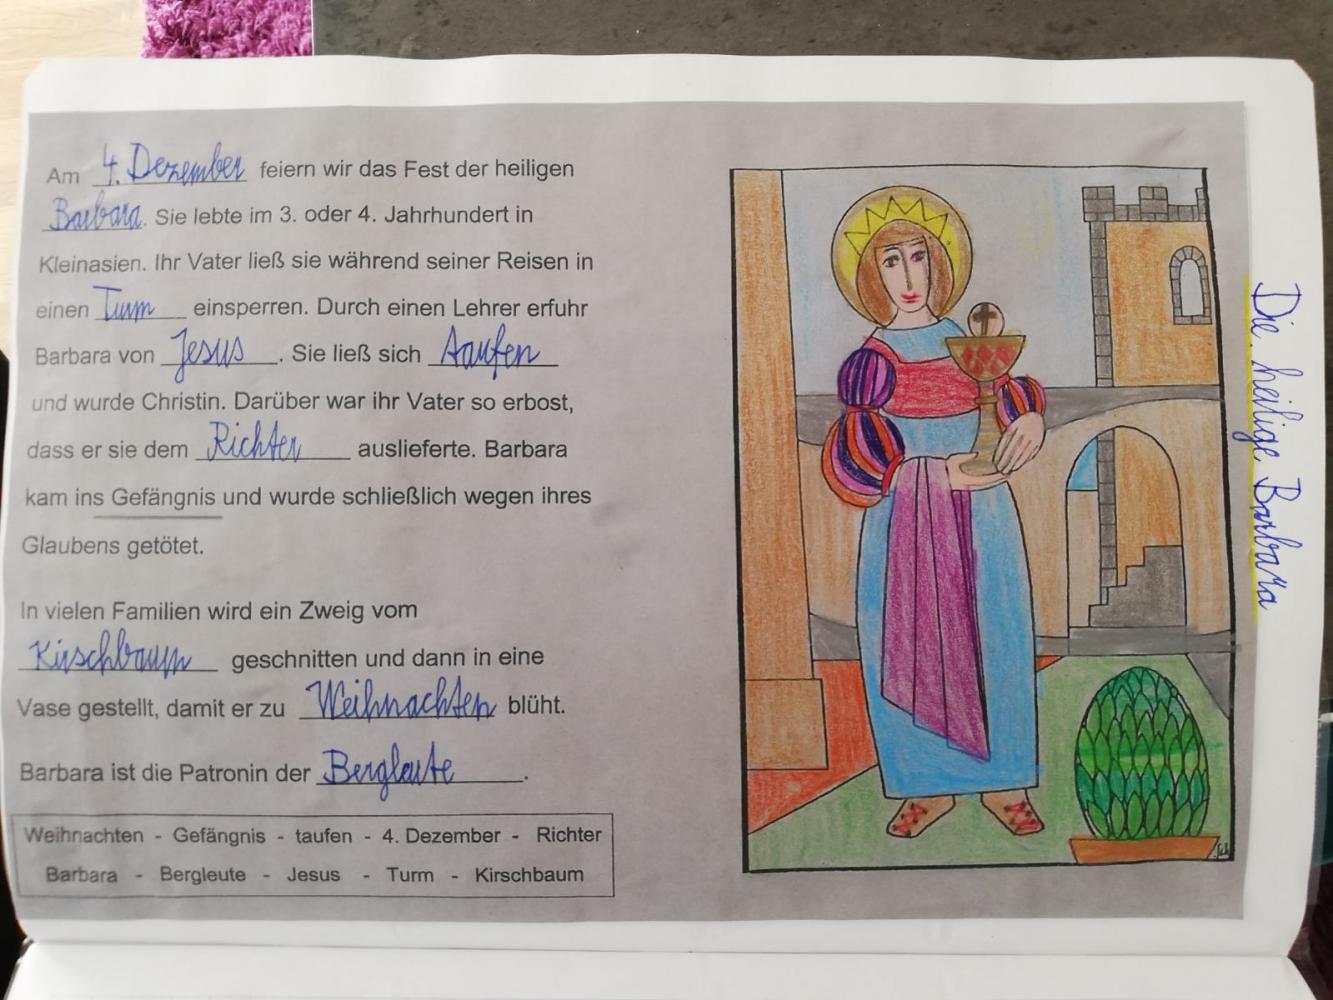 Am 4. Dezember feiern wir das Fest der heiligen
Barbara. Sie lebte im 3. oder 4. Jahrhundert in
Kleinasien. Ihr Vater ließ sie während seiner Reisen in
einen Turm einsperren. Durch einen Lehrer erfuhr
Barbara von Jesus. Sie ließ sich taufen
und wurde Christin. Darüber war ihr Vater so erbost,
dass er sie dem Richter auslieferte. Barbara
kam ins Gefängnis und wurde schließlich wegen ihres
Glaubens getötet.
In vielen Familien wird ein Zweig vom
Kirschbaum geschnitten und dann in eine
Vase gestellt, damit er zu Weihnachten blüht.
Barbara ist die Patronin der Bergleute.
Weihnachten - Gefängnis - taufen - 4. Dezember - Richter
Barbara - Bergleute - Jesus - Turm - Kirschbaum
Die heilige Barbara